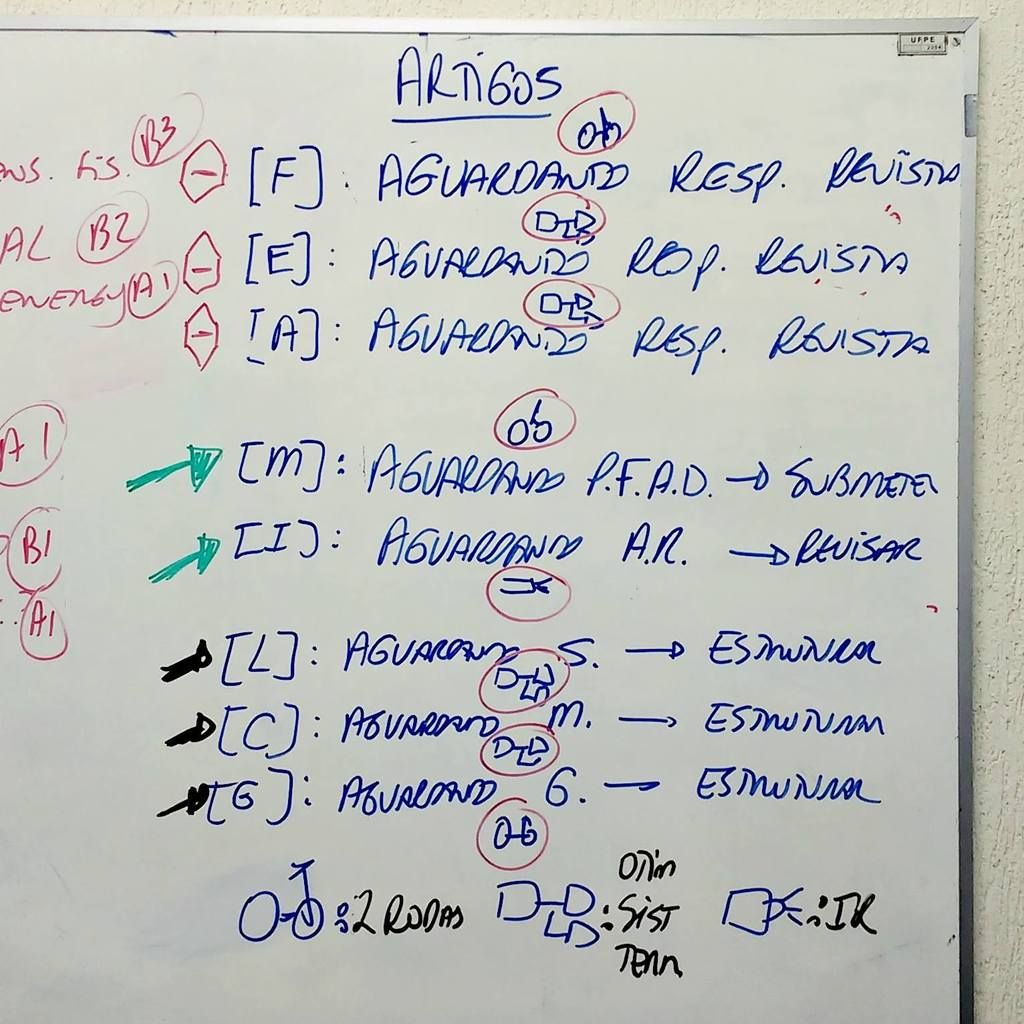 UFPE
ARTIGOS
B3
[F]: AGUARDANDO RESP. REVISTA
AL B2
[E]: AGUARDANDO RESP. REVISTA
ENERGY A1
[A]: AGUARDANDO RESP. REVISTA
A1
[M]: AGUARDANDO P.F.A.D. → SUBMETER
B1
[I]: AGUARDANDO A.R. → REVISAR
A1
[L]: AGUARDANDO S. → ESTRUTURAR
[C]: AGUARDANDO M. → ESTRUTURAR
[G]: AGUARDANDO G. → ESTRUTURAR
: 2 RODAS
: OTIM SIST TERM
: IR